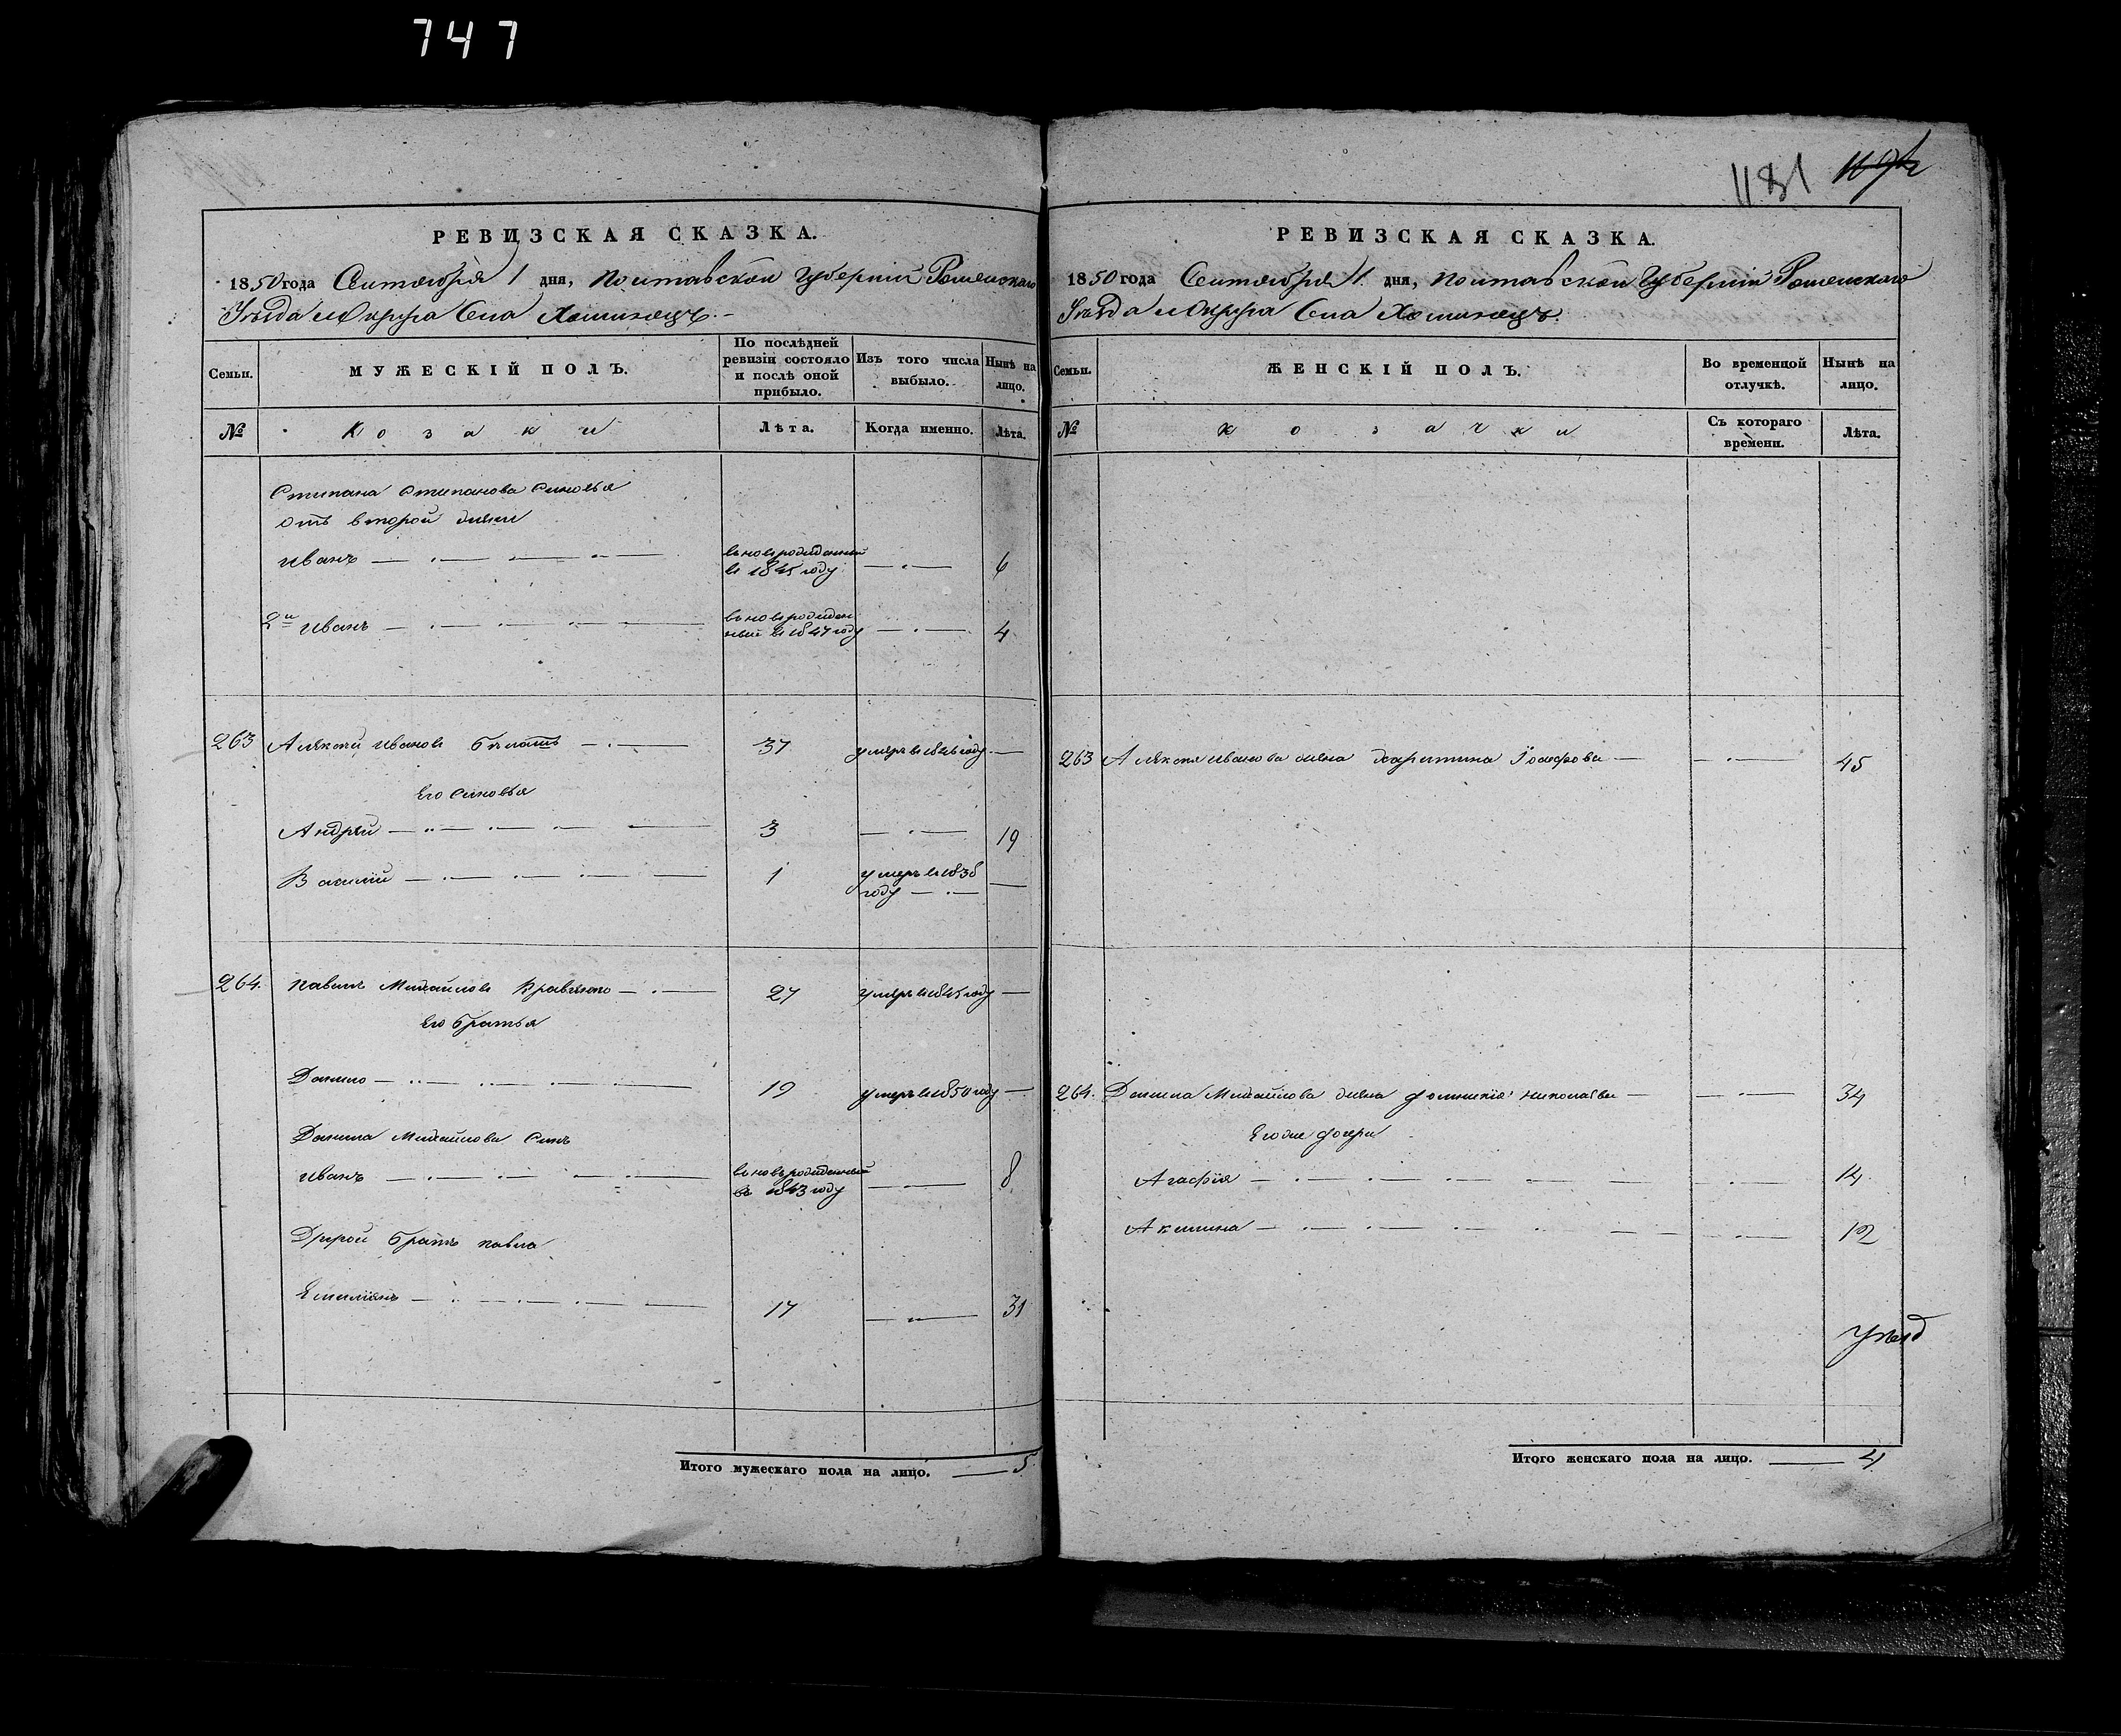 747
1181
РЕВИЗСКАЯ СКАЗКА.
1850 года Сентября 1 дня, Полтавской Губернїи Роменского
Уезда и Округа Села Хоминецъ.
Семьи.
МУЖЕСКІЙ ПОЛЪ.
По послѣдней ревизіи состояло и послѣ оной прибыло.
Изъ того числа выбыло.
Нынѣ на лицо.
№
Козаки
Лѣта.
Когда именно.
Лѣта.
Степана Степанова Синовья
отъ второй жены
Иванъ
вьновьрожденный
въ 1845 году
6
2й Иванъ
вьновьрожден
ный въ 1847 году
4
263
Алексей Иванов
37
умеръ въ 1846 году
Его Синовья
Андрей
3
19
Василий
1
умеръ въ 1836
году
264.
Павелъ Михайловъ Кравченко
27
умеръ въ 1845 году
Его братья
Данило
19
умеръ въ 1850 году
Данила Михайлова Синъ
Иванъ
вьновьрожденный
въ 1843 году
8
Другой братъ Павла
Емилїянъ
17
31
Итого мужескаго пола на лицо.
5
РЕВИЗСКАЯ СКАЗКА.
1850 года Сентября 1 дня, Полтавской Губернїи Роменскаго
Уезда и Округа Села Хоминецъ.
Семьи.
ЖЕНСКІЙ ПОЛЪ.
Во временной отлучкѣ.
Нынѣ на лицо.
№
Козачки
Съ котораго времени.
Лѣта.
263
Алексея Иванова жена Харитина Їосифова
45
264.
Данила Михайлова жена Николаева
34
Егоже дочери
Агафїя
14
Акилина
12
Итого женскаго пола на лицо.
4